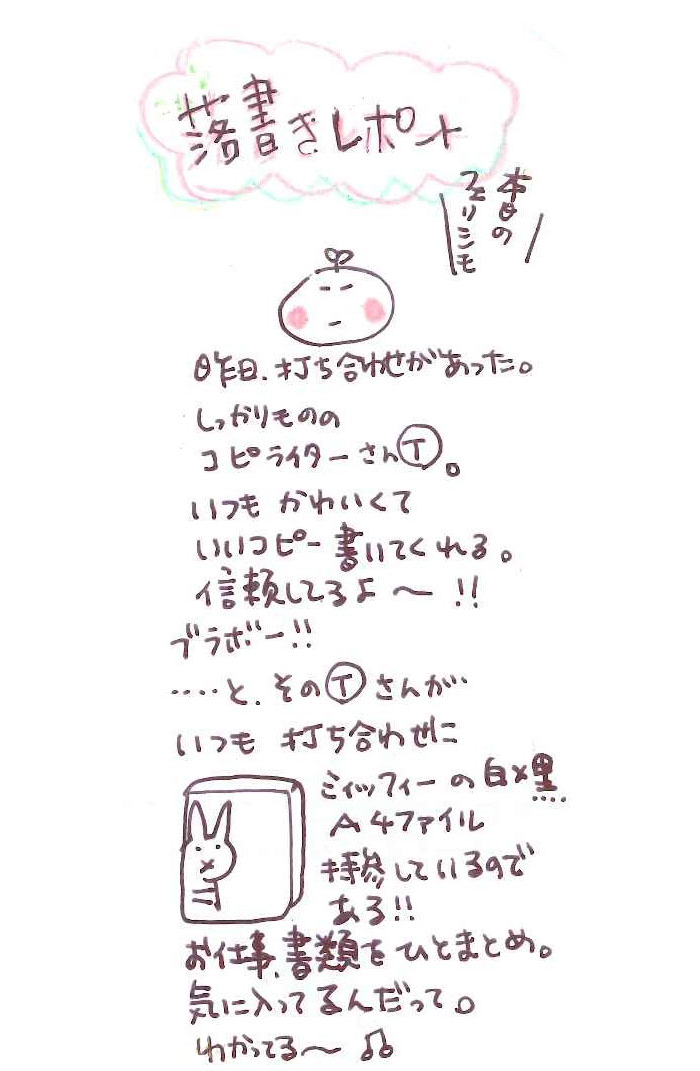 落書きレポート
本日の
フェリシモ
昨日、打ち合わせがあった。
しっかりものの
コピライターさんⓉ。
いつも かわいくて
いいコピー書いてくれる。
信頼してるよ〜!!
ブラボー!!
‥‥と、そのⓉさんが
いつも 打ち合わせに
ミィッフィーの白×黒
A4ファイル
持参しているので
ある!!
お仕事、書類をひとまとめ。
気に入ってるんだって。
わかってる〜♫